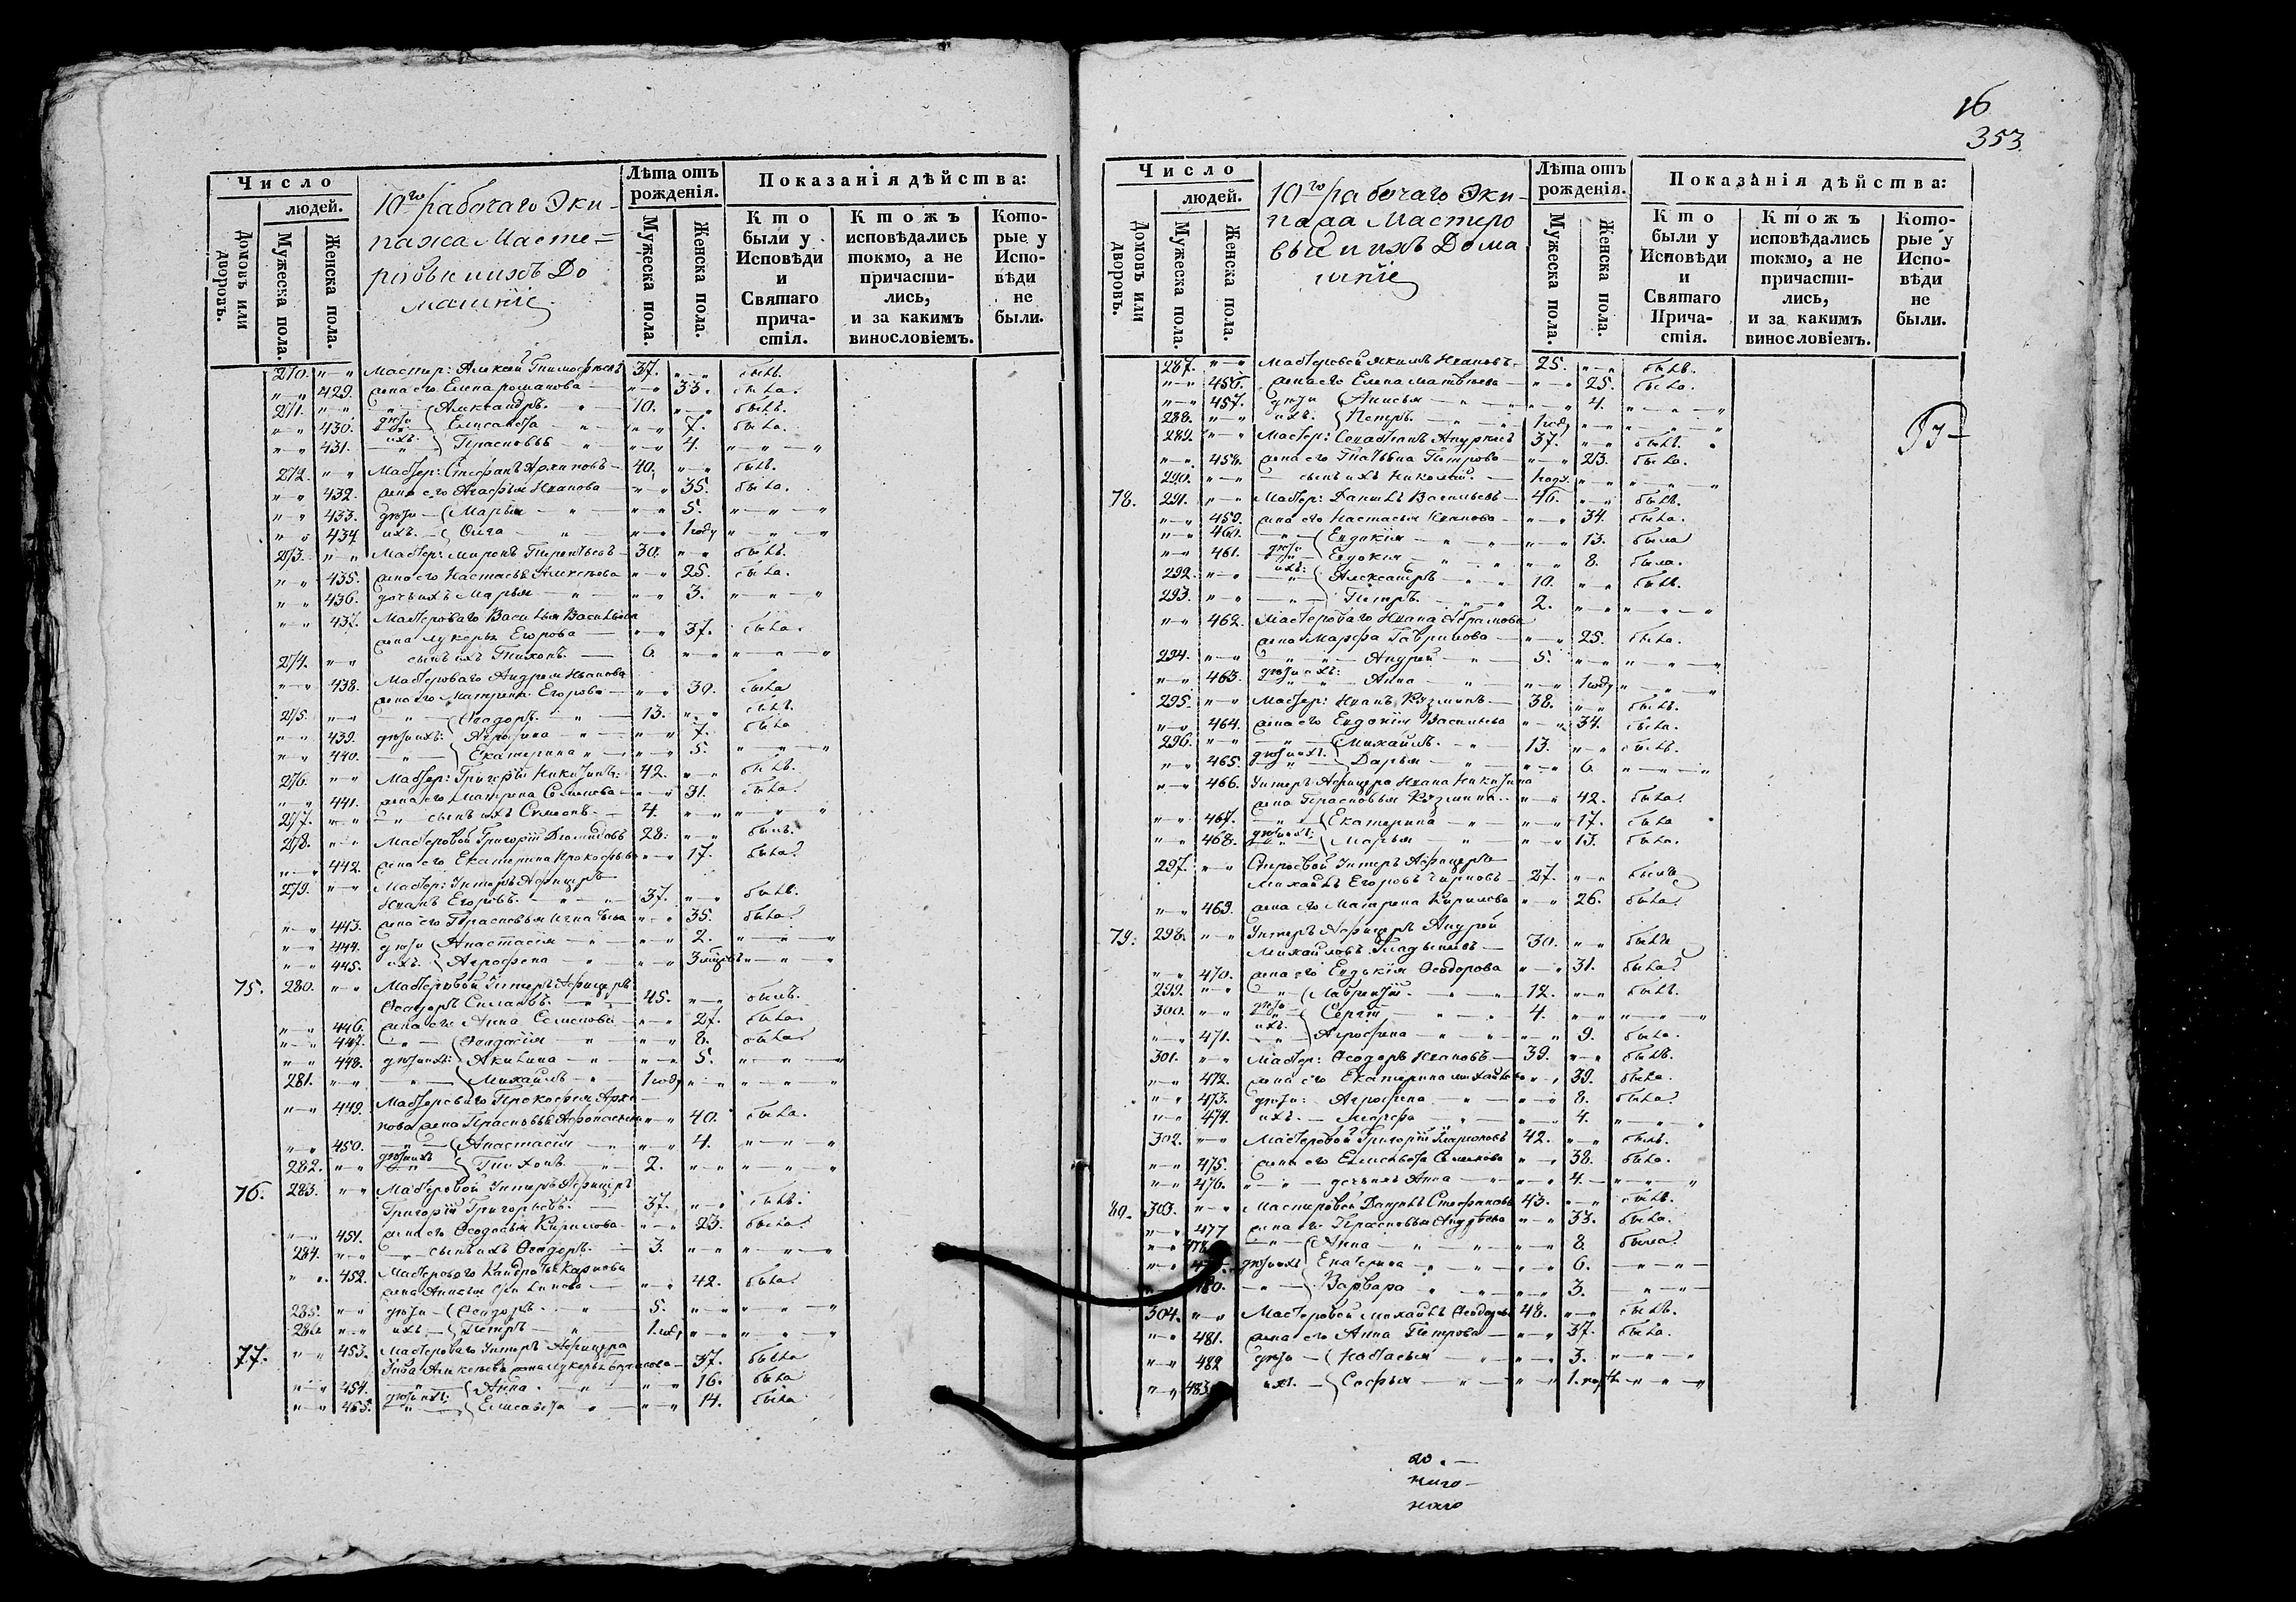 16
353
Число
людей.
Домовъ или дворовъ.
Мужеска пола.
Женска пола.
10го рабочаго Эки-
пажа Масте-
ровые и ихъ До
машніе
Лѣта отъ рожденія.
Мужеска пола.
Женска пола.
Показанія дѣйства:
Кто были у Исповѣди и Святаго причастія.
Ктожъ исповѣдались токмо, а не причастились, и за какимъ винословіемъ.
Которые у Исповѣди не были.
270. Мастер: Алексей 37. былъ.
429. жена его Елена романова 33. была.
271. Александръ 10. былъ.
430. дѣти Елисавета 7. была.
431. ихъ: Прасковья 4.
272. Мастер: Стефанъ Архиповъ 40. былъ.
432. жена его Агафья Иванова 35. была.
433. дѣти Марья 5.
434. ихъ. Олга 1 году
273. Мастер: Миронъ 30. былъ.
435. жена его Настасья Алексѣева 25. была.
436. дочь ихъ Марья 3.
437. Мастероваго Василья Васильева
жена Лукерья Егорова 37. была.
274. сынъ ихъ Тихонъ. 6.
438. Мастероваго Андрея Иванова
жена его Матрена Егорова 30. была
275. Ѳеодоръ 13. былъ.
439. дѣти ихъ: Агрофина 7. была
440. Екатерина 5.
276. Мастер: Григорій Никитинъ. 42. былъ.
441. жена его Матрена Семенова 31. была.
277. сынъ ихъ Симеонъ. 4.
278. Мастеровой Григорій 28. былъ.
442. жена его Екатерина Прокофьева 17. была.
279. Мастер: Унтеръ Афицеръ
Иванъ Егоровъ. 37. былъ.
443. жена его Прасковья Игнатьева 35. была.
444. дѣти Анастасія 2.
445. ихъ. Агрофена 3
75. 280. Мастеровой Унтеръ Афицеръ
Ѳеодоръ Силаевъ. 45. былъ.
446. жена его Анна Семенова 27. была.
447. Ѳеодосія 8. была.
448. дѣти ихъ: Акилина 5.
281. Михаилъ 1 году
449. Мастероваго Прокофья Архи
пова жена Прасковья 40. была.
450. Анастасія 4.
282. дѣти ихъ Тихонъ 2.
76. 283. Мастеровой Унтеръ Афицеръ
Григорій Григорьевъ. 37. былъ.
451. жена его Ѳеодосья Кирилова 23. была.
284. сынъ ихъ Ѳеодоръ. 3.
452. Мастероваго Кондратья Карпова
жена Анисья 42. была.
285. дѣти Ѳеодоръ 5.
286. ихъ Петръ 1 году
77. 453. Мастероваго Унтеръ Афицера
жена Лукерья 37. была
454. Анна 16. была
455. дѣти ихъ: Елисавета 14. была
Число
людей.
Домовъ или дворовъ.
Мужеска пола.
Женска пола.
10го рабочаго Эки-
пажа Мастеро
вые и ихъ Дома
шніе
Лѣта отъ рожденія.
Мужеска пола.
Женска пола.
Показанія дѣйства:
Кто были у Исповѣди и Святаго Причастія.
Ктожъ исповѣдались токмо, а не причастились, и за какимъ винословіемъ.
Которые у Исповѣди не были.
287. Мастеровой Якимъ Ивановъ 25. былъ.
456. жена его Елена Матвѣева 25. была.
457. дѣти Анисья 4.
288. ихъ. Петръ 1 году
289. Мастер: 37. былъ.
458. жена его Татьяна Петрова 23. была.
290. сынъ ихъ Николай. 1 году
78. 291. Мастер: Данилъ Васильевъ 46. былъ.
459. жена его Настасья Иванова 34. была.
460. Евдокія 13. была
461. дѣти Евдокія 8. была.
292. ихъ: Александръ 10. былъ.
293. Петръ. 2.
462. Мастероваго Ивана Абрамова
жена Марфа Гаврилова 25. была.
294. Андрей 5.
463. дѣти ихъ: Анна 1 году
295. Мастер: Иванъ Кузминъ 38. былъ.
464. жена его Евдокія Васильева 34. была.
296. Михаилъ. 13. былъ.
465. дѣти ихъ. Дарья 6.
466. Унтеръ Афицера Ивана Никитина
жена Прасковья Кузмина 42. была.
467. Екатерина 17. была
468. дѣти ихъ: Марья 13. была.
297. Строевой Унтеръ Афицеръ
Михаилъ Егоровъ 27. былъ
469. жена его Матрена Кирилова 26. была.
79. 298. Унтеръ Афицеръ Андрей
Михайловъ 30. былъ
470. жена его Евдокія Ѳеодорова 31. была.
299. Лаврентій. 12. былъ.
300. дѣти Сергій 4.
471. ихъ. Агрофина 9. была.
301. Мастер: Ѳеодоръ Ивановъ 39. былъ.
472. жена его Екатерина Михайлова 39. была.
473. дѣти: Агрофина 8. была.
474. ихъ. Марфа 4.
302. Мастеровой Григорій 42. былъ.
475. жена его Елисавета Семенова 38. была.
476. дочь ихъ Анна 4.
80. 303. Мастеровой Данилъ Стефановъ 43. былъ.
477 жена его Прасковья 33. была.
478 Анна 8. была.
дѣти ихъ Екатерина 6.
480. Варвара 3.
304. Мастеровой Михаилъ Ѳеодоровъ 48. былъ.
481. жена его Анна Петрова 37. была.
482 дѣти Настасья 3.
483 ихъ. Софья 1.